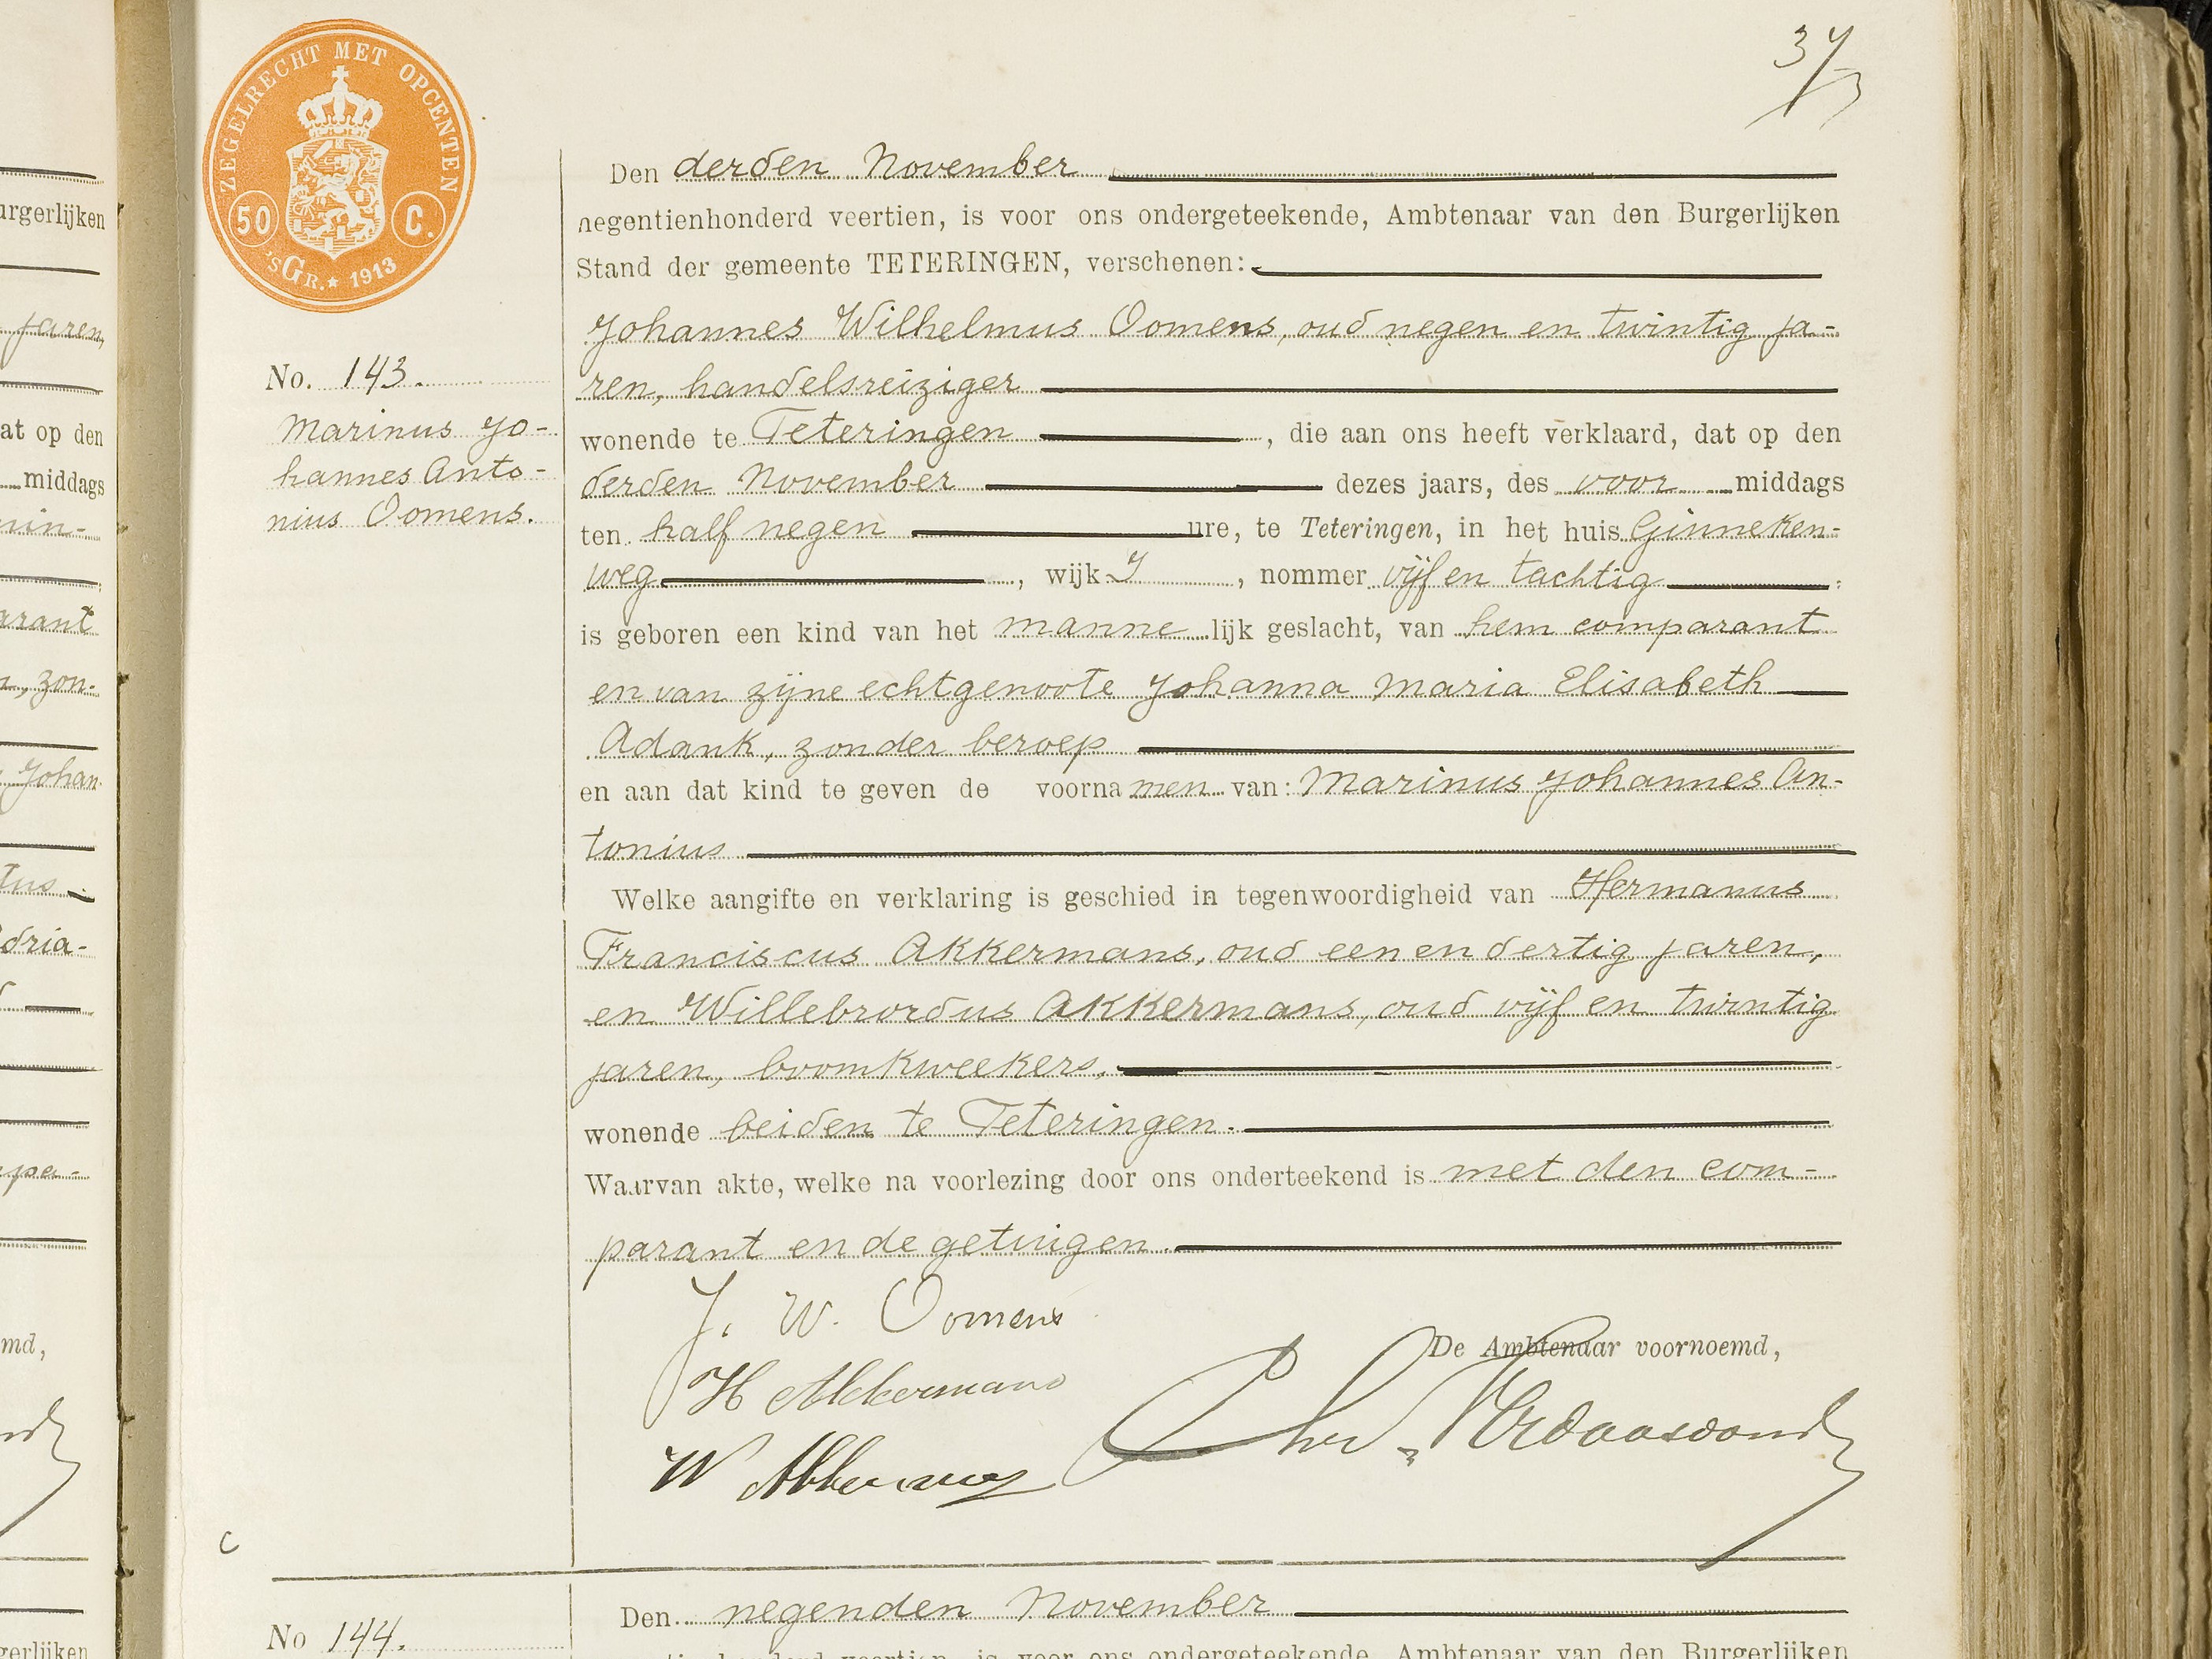 ZEGELRECHT MET OPCENTEN
50 C.
'SGR.★ 1913
Den derden November
negentienhonderd veertien, is voor ons ondergeteekende, Ambtenaar van den Burgerlijken
Stand der gemeente TETERINGEN, verschenen:
Johannes Wilhelmus Oomens, oud negen en twintig ja-
ren, handelsreiziger
wonende te Teteringen, die aan ons heeft verklaard, dat op den
derden November dezes jaars, des voor middags
ten half negen ure, te Teteringen, in het huis Ginneken-
weg, wijk J, nommer vijf en tachtig;
is geboren een kind van het mannelijk geslacht, van hem comparant
en van zijne echtgenoote Johanna Maria Elisabeth
Adank, zonder beroep
en aan dat kind te geven de voornamen van: Marinus Johannes An-
tonius
Welke aangifte en verklaring is geschied in tegenwoordigheid van Hermanus
Franciscus Akkermans, oud een en dertig jaren,
en Willebrordus Akkermans, oud vijf en twintig
jaren, boomkweekers,
wonende beiden te Teteringen.
Waarvan akte, welke na voorlezing door ons onderteekend is met den com-
parant en de getuigen.
J. W. Oomens
De Ambtenaar voornoemd,
H Akkermans
W Akkermans
No. 143.
Marinus Jo-
hannes Anto-
nius Oomens.
No 144.
Den negenden November
ondergeteekende, Ambtenaar van den Burgerlijken
urgerlijken
jaren,
at op den
middags
arant
zon-
Johan-
tus
dria-
md,
gerlijken